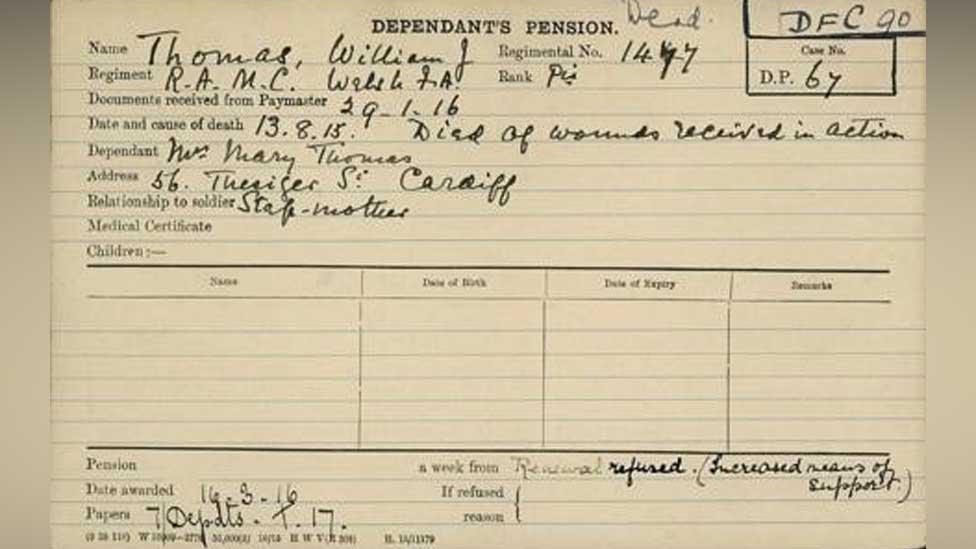 DEPENDANT'S PENSION. Dead. DFC 90
Name Thomas, William J Regimental No. 1497 Case No.
Regiment R.A.M.C. Welsh F.A. Rank Pte D.P. 67
Documents received from Paymaster 29-1-16
Date and cause of death 13.8.15. Died of wounds received in action
Dependant Mrs Mary Thomas
Address 56. Thesiger St. Cardiff
Relationship to soldier Step-mother
Medical Certificate
Children:—
Name Date of Birth Date of Expiry Remarks
Pension a week from Renewal refused. (Increased means of support.)
Date awarded 16-3-16 If refused
Papers 7/Depdts. T. 17. reason